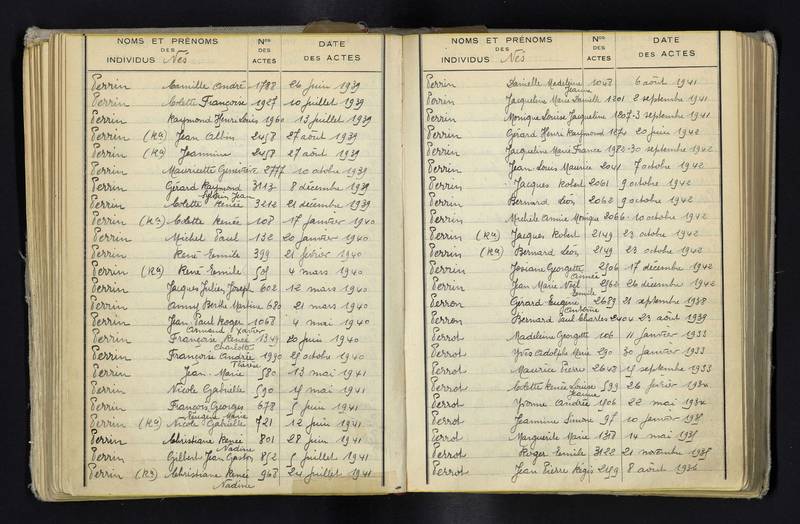 NOMS ET PRÉNOMS
DES
INDIVIDUS Nés
Nos
DES
ACTES
DATE
DES ACTES
Perrin Camille André 1788 26 juin 1939
Perrin Colette Françoise 1927 10 juillet 1939
Perrin Raymond Henri Louis 1960 13 juillet 1939
Perrin (Ra) Jean Albin 2458 27 août 1939
Perrin (Ra) Jeannine 2458 27 août 1939
Perrin Mauricette Geneviève 2777 10 octobre 1939
Perrin Gérard Raymond 3113 8 décembre 1939
Sylvain Jean
Perrin Colette Renée 3212 21 décembre 1939
Perrin (Ra) Colette Renée 108 17 janvier 1940
Perrin Michel Paul 132 20 janvier 1940
Perrin René Emile 399 21 février 1940
Perrin (Ra) René Emile 505 4 mars 1940
Perrin Jacques Julien Joseph 602 12 mars 1940
Perrin Anny Berthe Martine 680 21 mars 1940
Perrin Jean Paul Roger 1068 4 mai 1940
Armand Xavier
Perrin Françoise Renée 1349 20 juin 1940
Charlotte
Perrin Françoise Andrée 1990 25 octobre 1940
Thérèse
Perrin Jean Marie 580 13 mai 1941
Perrin Nicole Gabrielle 590 15 mai 1941
Perrin François Georges 678 5 juin 1941
Eugène Marie
Perrin (Ra) Nicole Gabrielle 721 12 juin 1941
Perrin Christiane Renée 801 28 juin 1941
Nadine
Perrin Gilbert Jean Gaston 852 5 juillet 1941
Perrin (Ra) Christiane Renée 968 24 juillet 1941
Nadine
NOMS ET PRÉNOMS
DES
INDIVIDUS Nés
Nos
DES
ACTES
DATE
DES ACTES
Perrin Danielle Madeleine 1048 6 août 1941
Jeanne
Perrin Jacqueline Marie Danielle 1201 2 septembre 1941
Perrin Monique Louise Jacqueline 1207 3 septembre 1941
Perrin Gérard Henri Raymond 20 juin 1942
Perrin Jacqueline Marie France 1982 30 septembre 1942
Perrin Jean Louis Maurice 2041 7 octobre 1942
Perrin Jacques Robert 2061 9 octobre 1942
Perrin Bernard Léon 2062 9 octobre 1942
Perrin Michèle Aimée Monique 2066 10 octobre 1942
Perrin (Ra) Jacques Robert 2149 23 octobre 1942
Perrin (Ra) Bernard Léon 2149 23 octobre 1942
Perrin Josiane Georgette 2506 17 décembre 1942
Aimée
Perrin Jean Marie Noël 2562 26 décembre 1942
Emile
Perron Gérard Eugène 2689 21 septembre 1938
Antoine
Perron Bernard Paul Charles 2404 23 août 1939
Perrot Madeleine Georgette 106 11 janvier 1933
Perrot Yves Adolphe René 290 30 janvier 1933
Perrot Maurice Pierre 2643 15 septembre 1933
Perrot Colette Renée Louise 599 26 février 1934
Jeanne
Perrot Yvonne Andrée 1506 22 mai 1934
Perrot Jeannine Simone 97 10 janvier 1935
Perrot Marguerite Marie 1318 14 mai 1935
Perrot Roger Emile 3122 21 novembre 1935
Perrot Jean Pierre Régis 2159 8 août 1936